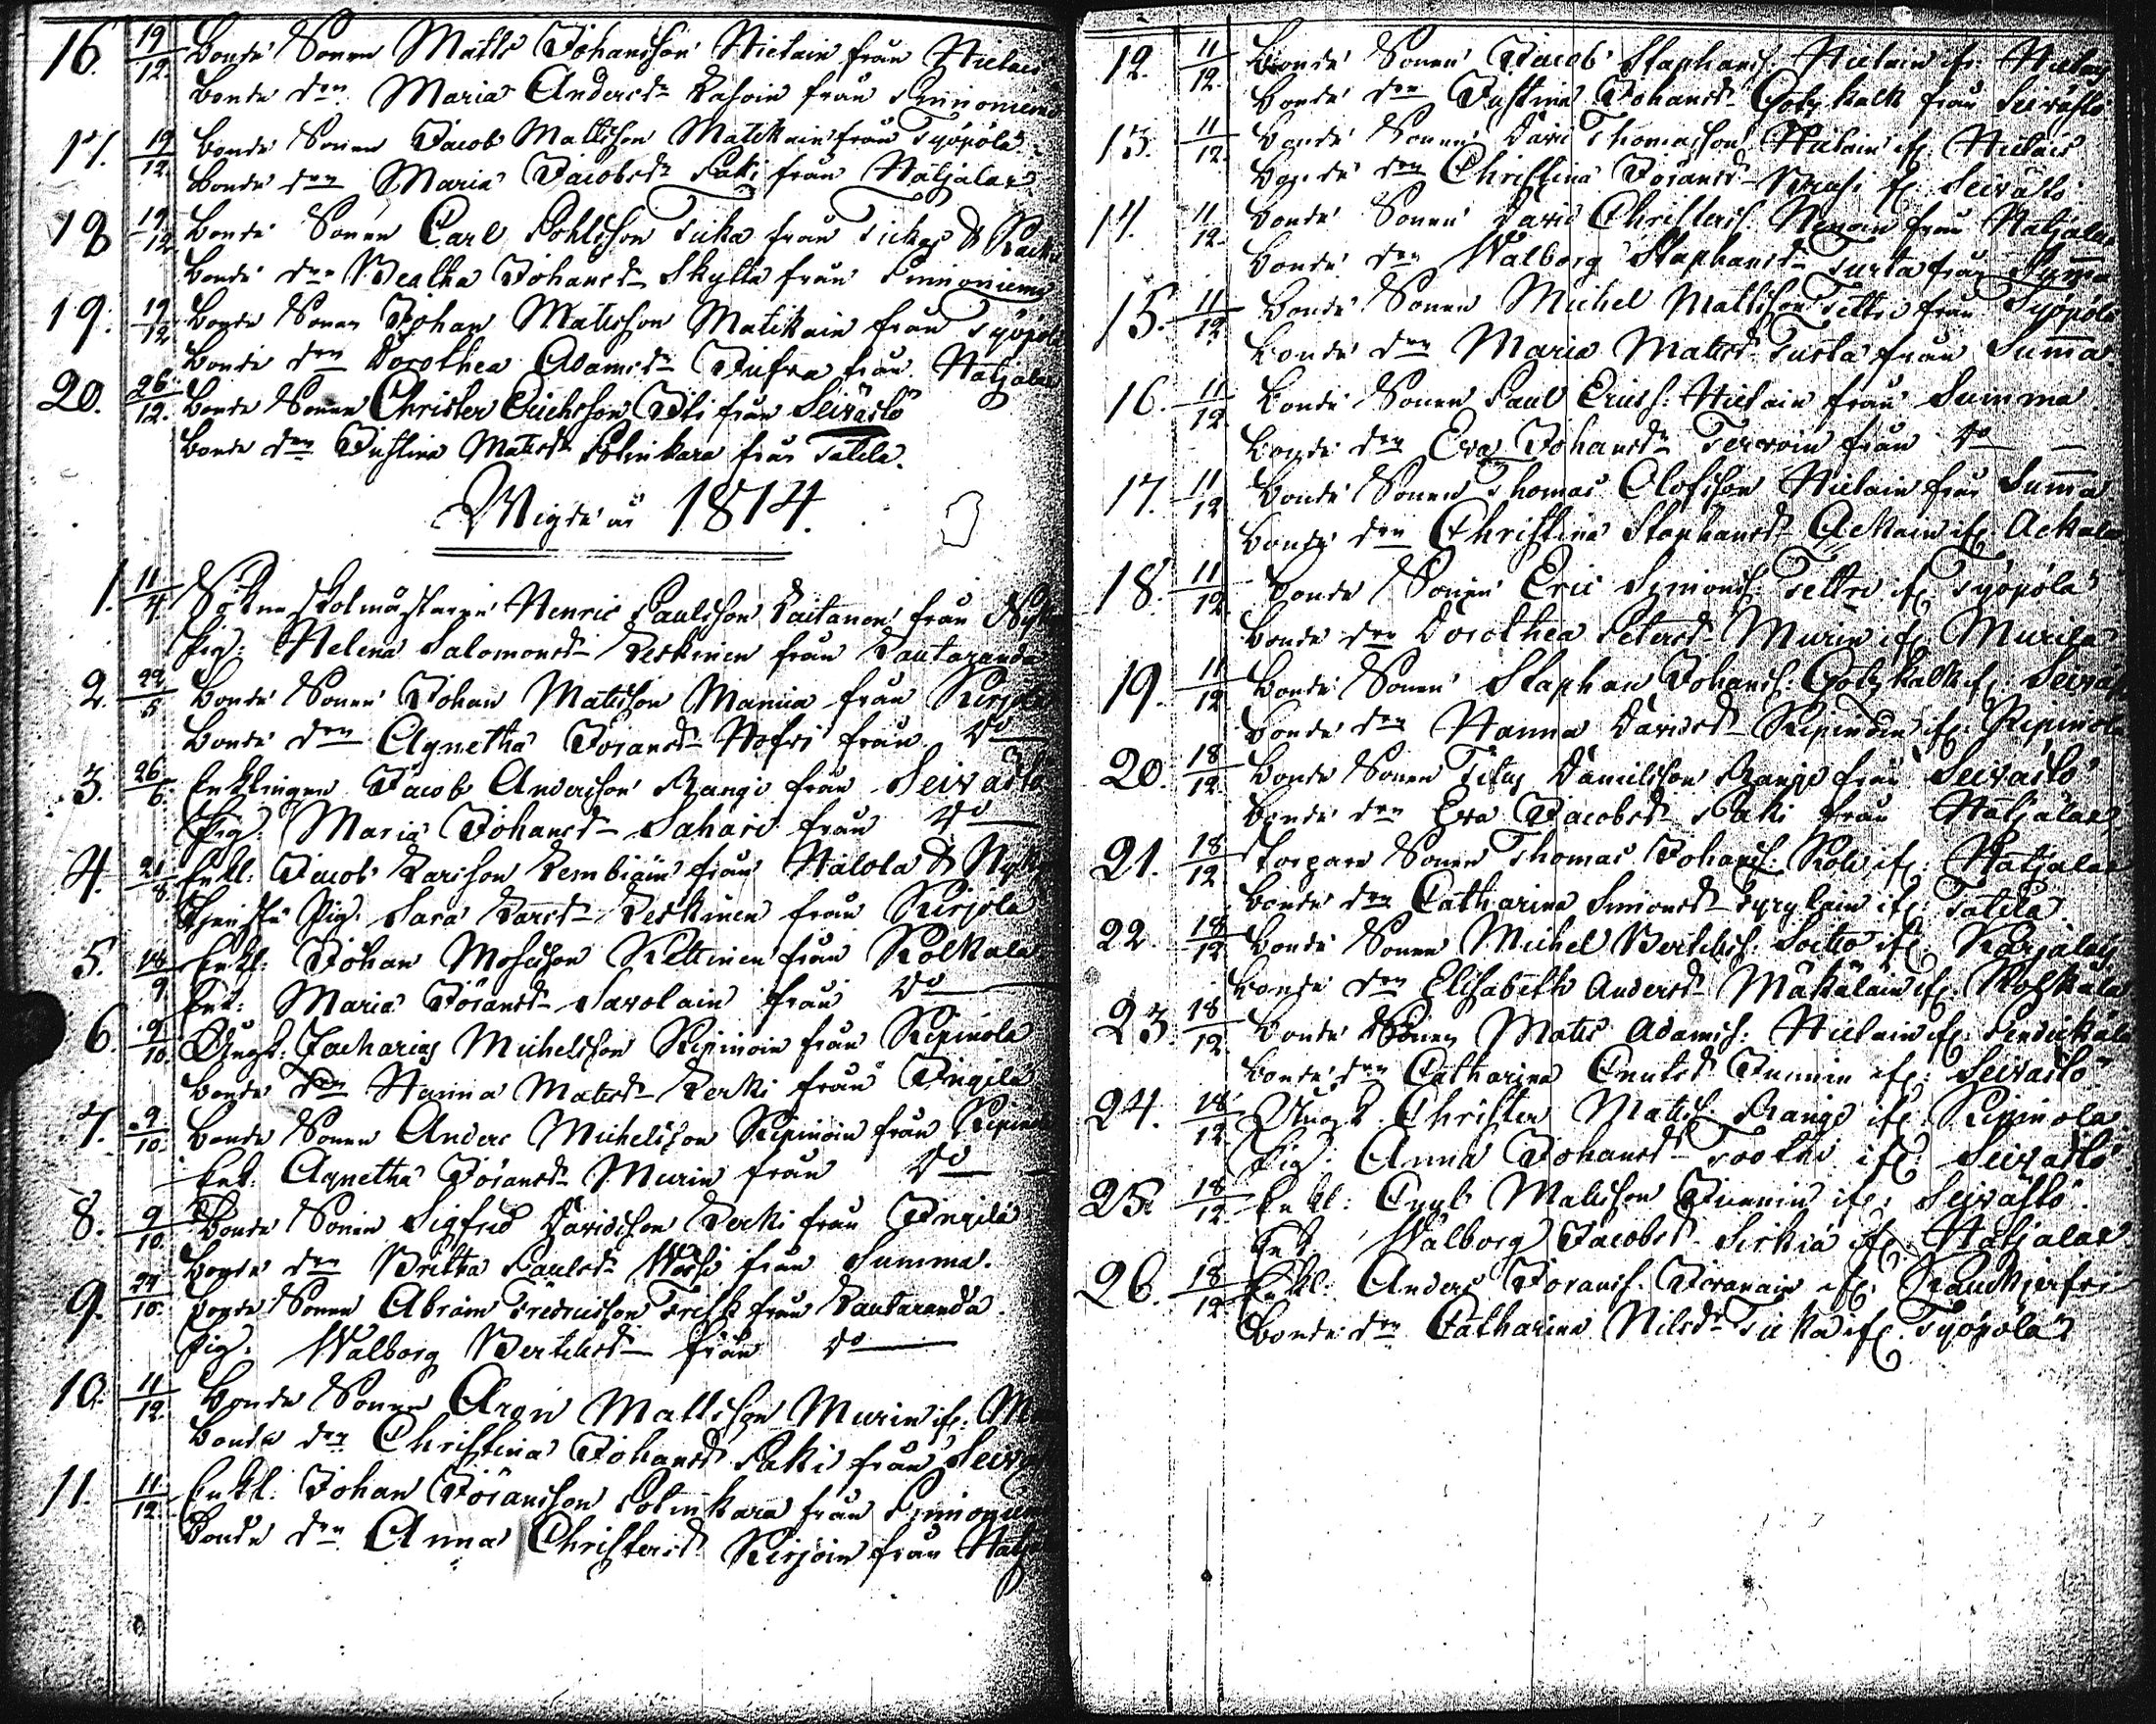 16. 19/12. Bonde Sonen Matts Johansson Hietain från Hietais
Bonde drn Maria Andersdr från Pinnoniemi
17. 19/12. Bonde Sonen Jacob Mattsson Matikain från Työpölä
Bonde drn Maria Jacobsdr Paki från Hatjalax
18 19/12 Bonde Sonen Carl Pohlsson Ticka från
Bonde drn Beatha Johansdr Skyttä från Pinnoniemi
19. 19/12 Bonde Sonen Johan Matsson Matikain från Työpölä
Bonde drn Dorothea Adamsdr från Hatjalax
20. 26/12. Bonde Sonen Christer Erichsson från Seivästö
Bonde drn Justina Matsdr Polinkara från Tatila.
Wigde år 1814.
1. 11/4. Henric Paulsson Laitanen från
Pig: Helena Salomonsdr Leskinen från Lautaranda
2. 22/5 Bonde Sonen Johan Matsson Mannia från Kirjola
Bonde drn Agnetha Göransdr Hofri från Do
3. 26/6. Enklingen Jacob Andersson Rangi från Seivästö
Pig: Maria Johansdr Sahari från Do
4. 21/8. Enkl: Jacob Larsson Lembiäin från Hälölä &
Pig. Sara Larsdr Leskinen från Kirjola
5. 18/9 Enkl: Johan Mosesson Kettinen från Kolkala
Enk: Maria Göransdr Savolain från Do
6. 9/10. Ungk: Zacharias Michelsson Kipinoin från Kipinola
Bonde drn Hanna Matsdr Lerki från Ingilä
7. 9/10. Bonde Sonen Anders Michelsson Kipinoin från Kipinola
Enk: Agnetha Göransdr Murin från Do
8. 9/10 Bonde Sonen Sigfred Davidsson Lerki från Ingilä
Bonde drn Britha Paulsdr från Summa.
9. 24/10. Bonde Sonen Abram Fredricsson Frisk från Lautaranda.
Pig. Walborg Bertelsdr från Do
10. 11/12. Bonde Sonen Aron Mattsson Murin ifr:
Bonde drn Christina Johansdr Paki från Seivästö
11. 11/12. Enkl: Johan Göransson Polinkara från Pinnoniemi
Bonde drn Anna Christersdr Kirjoin från
12. 11/12. Bonde Sonen Jacob Staphanss. Hietain ifr. Hietais
Bonde drn Justina Johansdr Gotzkalk från Seivästö
13. 11/12. Bonde Sonen David Thomasson Hietain ifr. Hietais
Bonde drn Christina Göransdr ifr. Seivästö
14. 11/12. Bonde Sonen David Christerss. Nenoin från Hatjalax
Bonde drn Walborg Staphansdr Tursta från Summa
15. 11/12 Bonde Sonen Michel Mattsson Tettri från Työpölä
Bonde drn Maria Matsdr Tursta från Summa
16. 11/12 Bonde Sonen Paul Ericss: Hietain från Summa
Bonde drn Eva Johansdr Tervoin från Do
17. 11/12 Bonde Sonen Thomas Olofsson Hietain från Summa
Bonde drn Christina Staphansdr Ackain ifr. Ackala
18. 11/12. Bonde Sonen Eric Symonss. Tettri ifr. Työpölä
Bonde drn Dorothea Petersdr Murin ifr. Murila
19. 11/12. Bonde Sonen Staphan Johanss. Gotzkalk ifr. Seivästö
Bonde drn Hanna Davidsdr Kipinoin ifr. Kipinola
20. 18/12. Bonde Sonen Titus Danielsson Rangi från Seivästö
Bonde drn Eva Jacobsdr Paki från Hatjalax
21. 18/12. Torpare Sonen Thomas Johanss. ifr. Hatjalax
Bonde drn Catharina Simonsdr ifr. Tatila.
22. 18/12 Bonde Sonen Michel Bertelss. ifr. Karjalais
Bonde drn Elisabeth Andersdr Mäkäläin ifr. Kolkala
23. 18/12. Bonde Sonen Mats Adamss: Hietain ifr. Pendickälä
Bonde drn Catharina Enutsd. Junnin ifr: Seivästö
24. 18/12. Ungk. Christer Matss. Rangi ifr. Kipinola
Pig: Anna Johansdr Tootki ifr. Seivästö
25. 18/12. Enkl: Matsson Junnin ifr: Seivästö.
Enk. Walborg Jacobsd. Sirkiä ifr. Hatjalax
26. 18/12. Enkl: Anders Göranss. ifr: Kaukjerfvi
Bonde drn Catharina Nilsdr Ticka ifr. Työpölä